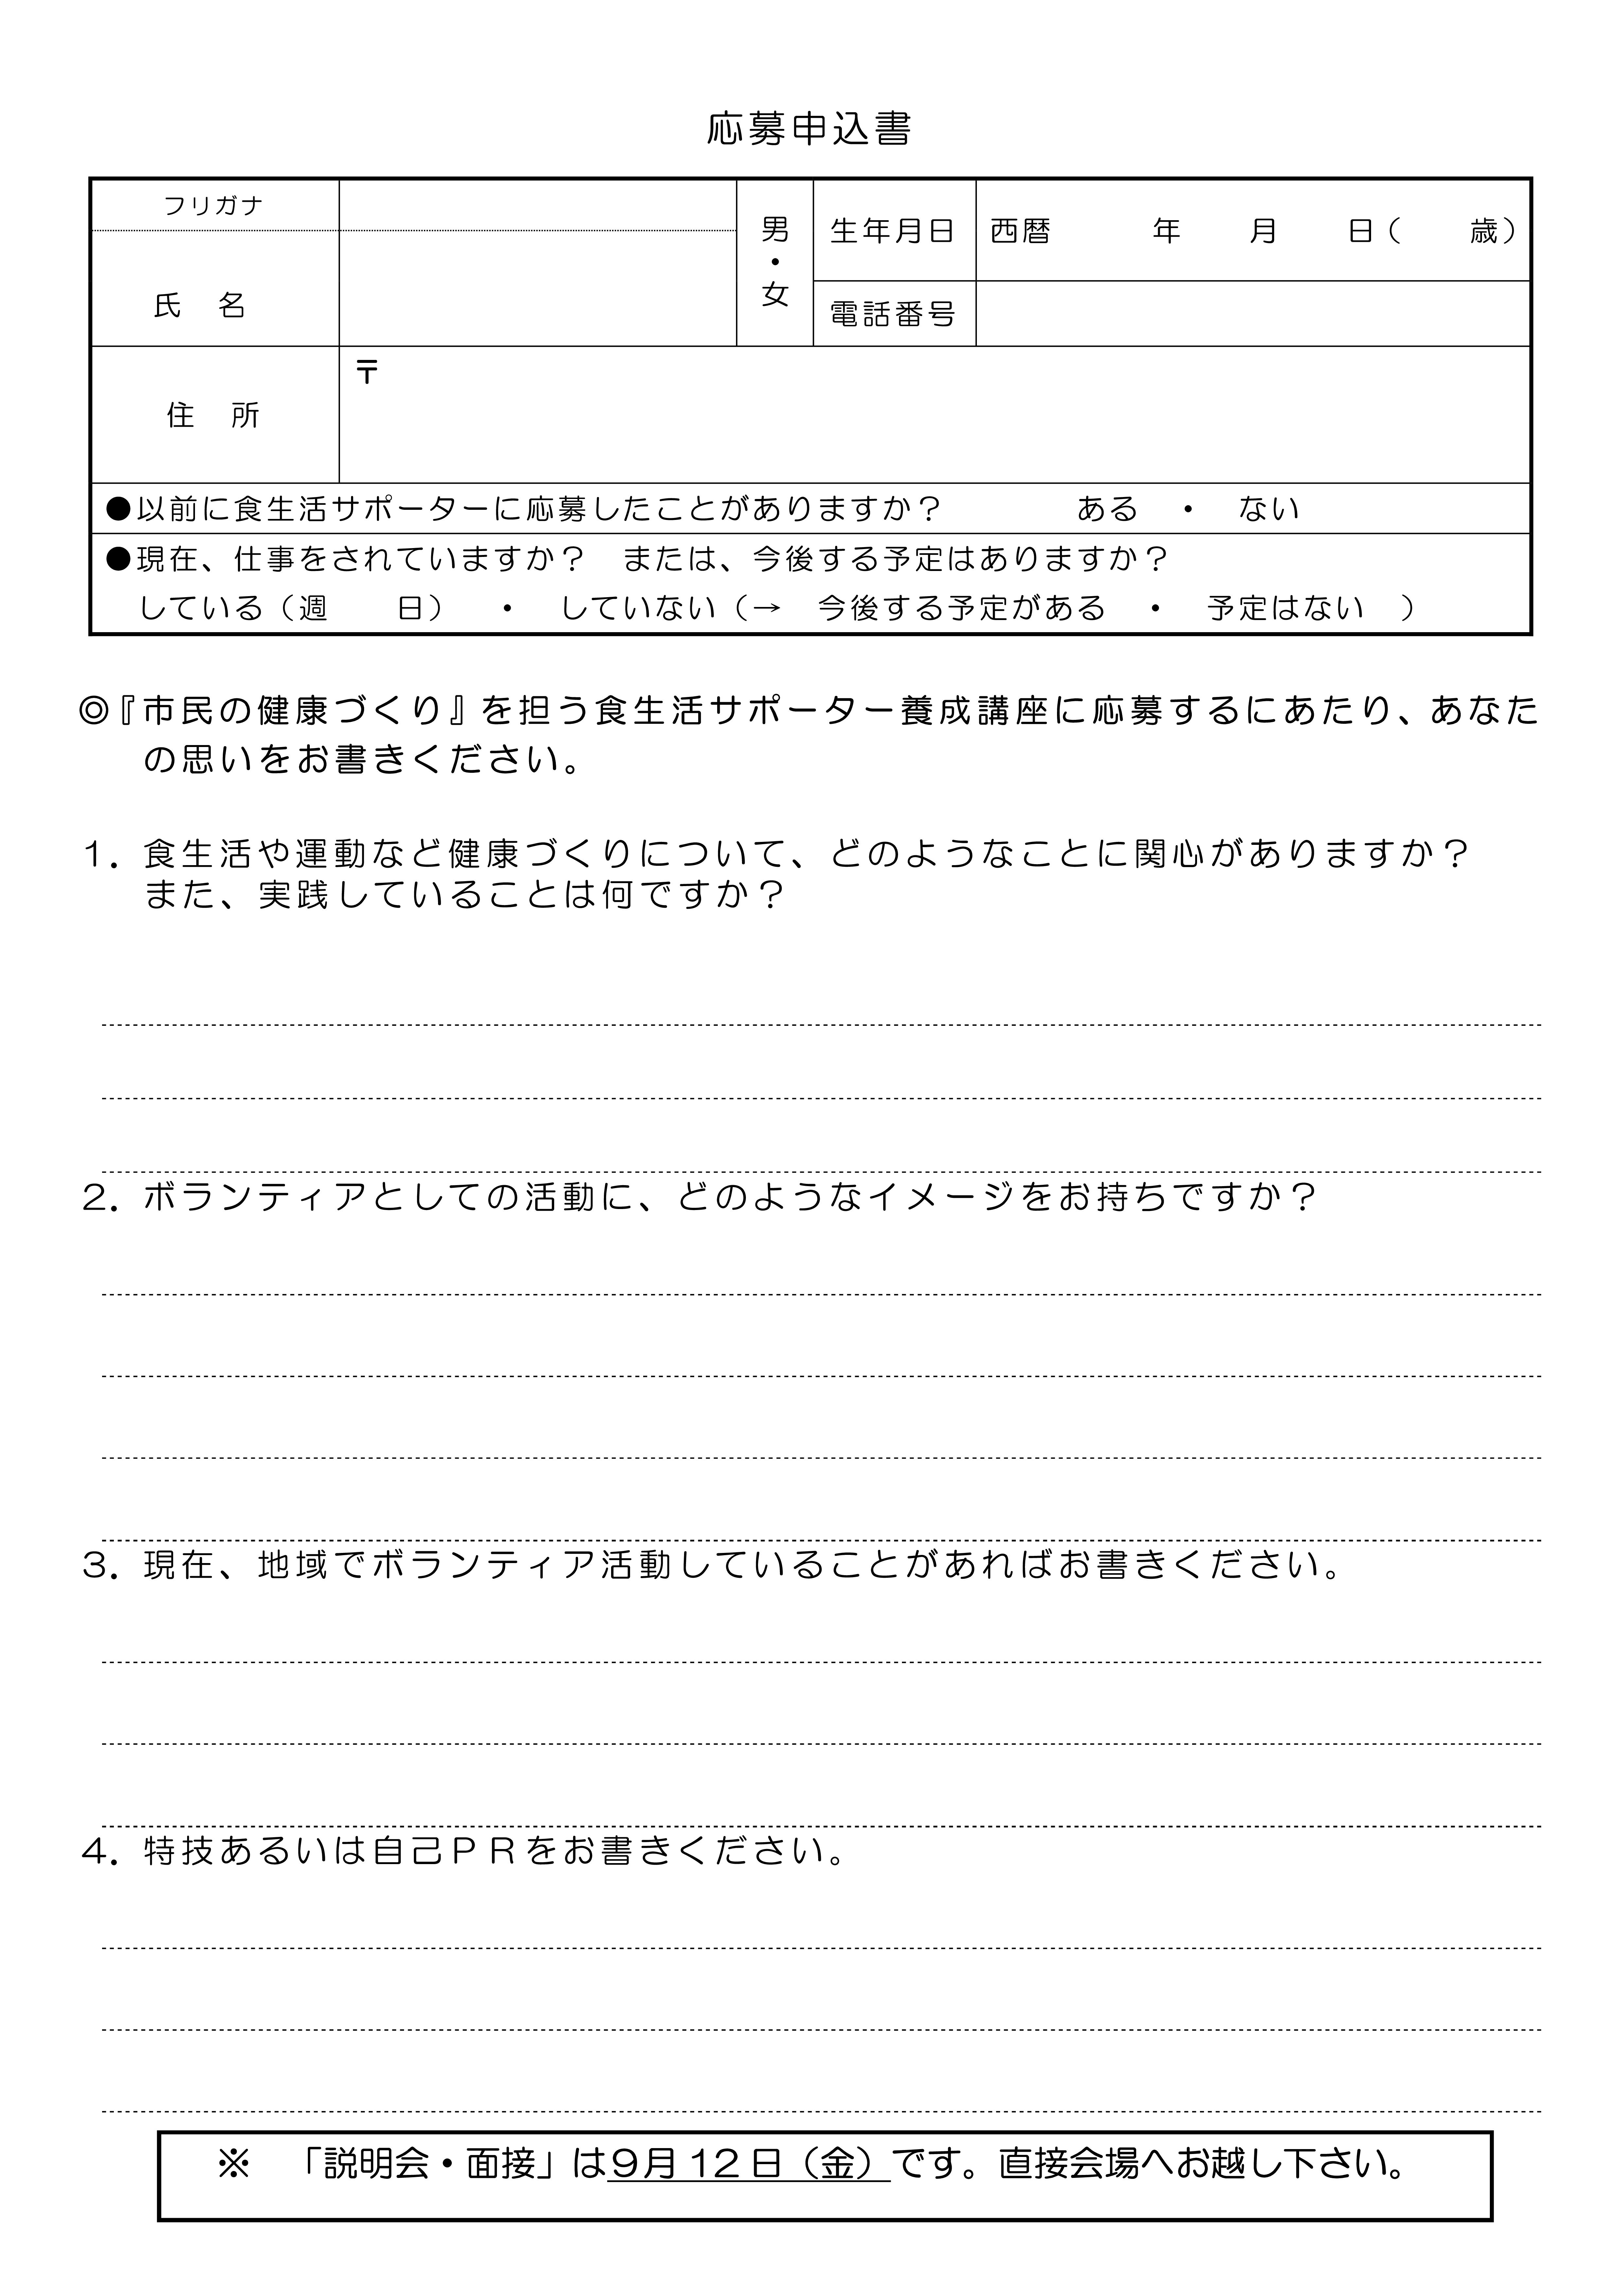 応募申込書
フリガナ
氏　名
男・女
生年月日
西暦　　　年　　月　　日（　　歳）
電話番号
住　所
〒
●以前に食生活サポーターに応募したことがありますか？　　　　ある　・　ない
●現在、仕事をされていますか？　または、今後する予定はありますか？
している（週　　日）　・　していない（→　今後する予定がある　・　予定はない　）
◎『市民の健康づくり』を担う食生活サポーター養成講座に応募するにあたり、あなた
の思いをお書きください。
1．食生活や運動など健康づくりについて、どのようなことに関心がありますか？
また、実践していることは何ですか？
2．ボランティアとしての活動に、どのようなイメージをお持ちですか？
3．現在、地域でボランティア活動していることがあればお書きください。
4．特技あるいは自己ＰＲをお書きください。
※　「説明会・面接」は9月12日（金）です。直接会場へお越し下さい。